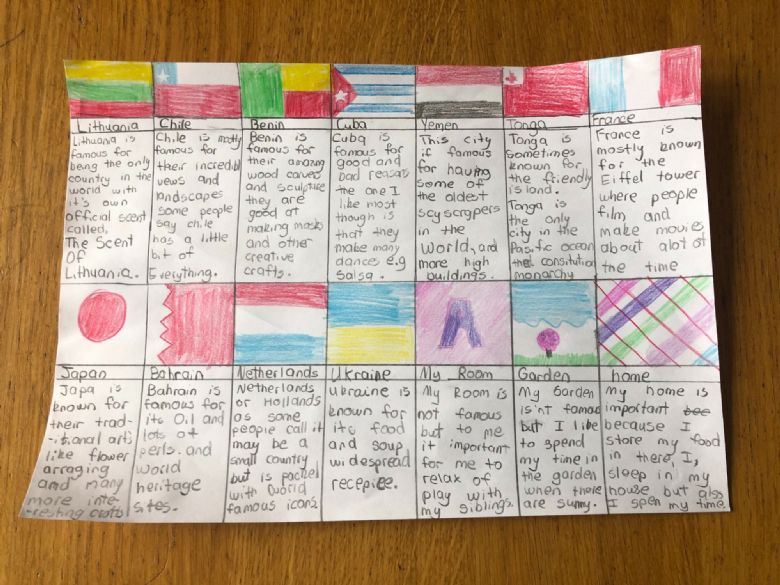 Lithuania
Lithuania is
famous for
being the only
country in the
world with
it's own
official scent
called,
The Scent
Of
Lithuania.
Chile
Chile is mostly
famous for
their incredibl
vews and
landscapes
some people
say chile
has a little
bit of
Everything.
Benin
Benin is
famous for
their amazing
wood carves
and sculpture
they are
good at
making masks
and other
creative
crafts.
Cuba
Cuba is
famous for
good and
bad reasons
the one I
like most
though is
that they
make many
dances e.g
Salsa.
Yemen
This city
if famous
for having
some of
the oldest
scyscrapers
in the
World, and
more high
buildings.
Tonga
Tonga is
Sometimes
known for
the friendly
island.
Tonga is
the only
city in the
Pasific ocean
constitution
monarchy
France
France is
mostly known
for the
Eiffel tower
where people
film and
make movies
about alot of
the time
Japan
Japa is
known for
their trad-
-itional arts
like flower
arraging
and many
more inte
-reshing crafts
Bahrain
Bahrain is
famous for
its Oil and
lots of
perls. and
world
heritage
sites.
Netherlands
Netherlands
or Hollands
as some
people call it
may be a
small country
but is packed
with world
famous icons.
Ukraine
Ukraine is
known for
its food
and soup
widespread
recepiee.
A
My Room
My Room is
not famous
but to me
it important
for me to
relax of
play with
my siblings.
Garden
My Garden
isint famous
but I like
to spend
my time in
the garden
when there
are sunny.
home
My home is
important
because I
store my food
in there, I,
sleep in my
house but also
I spen my time.